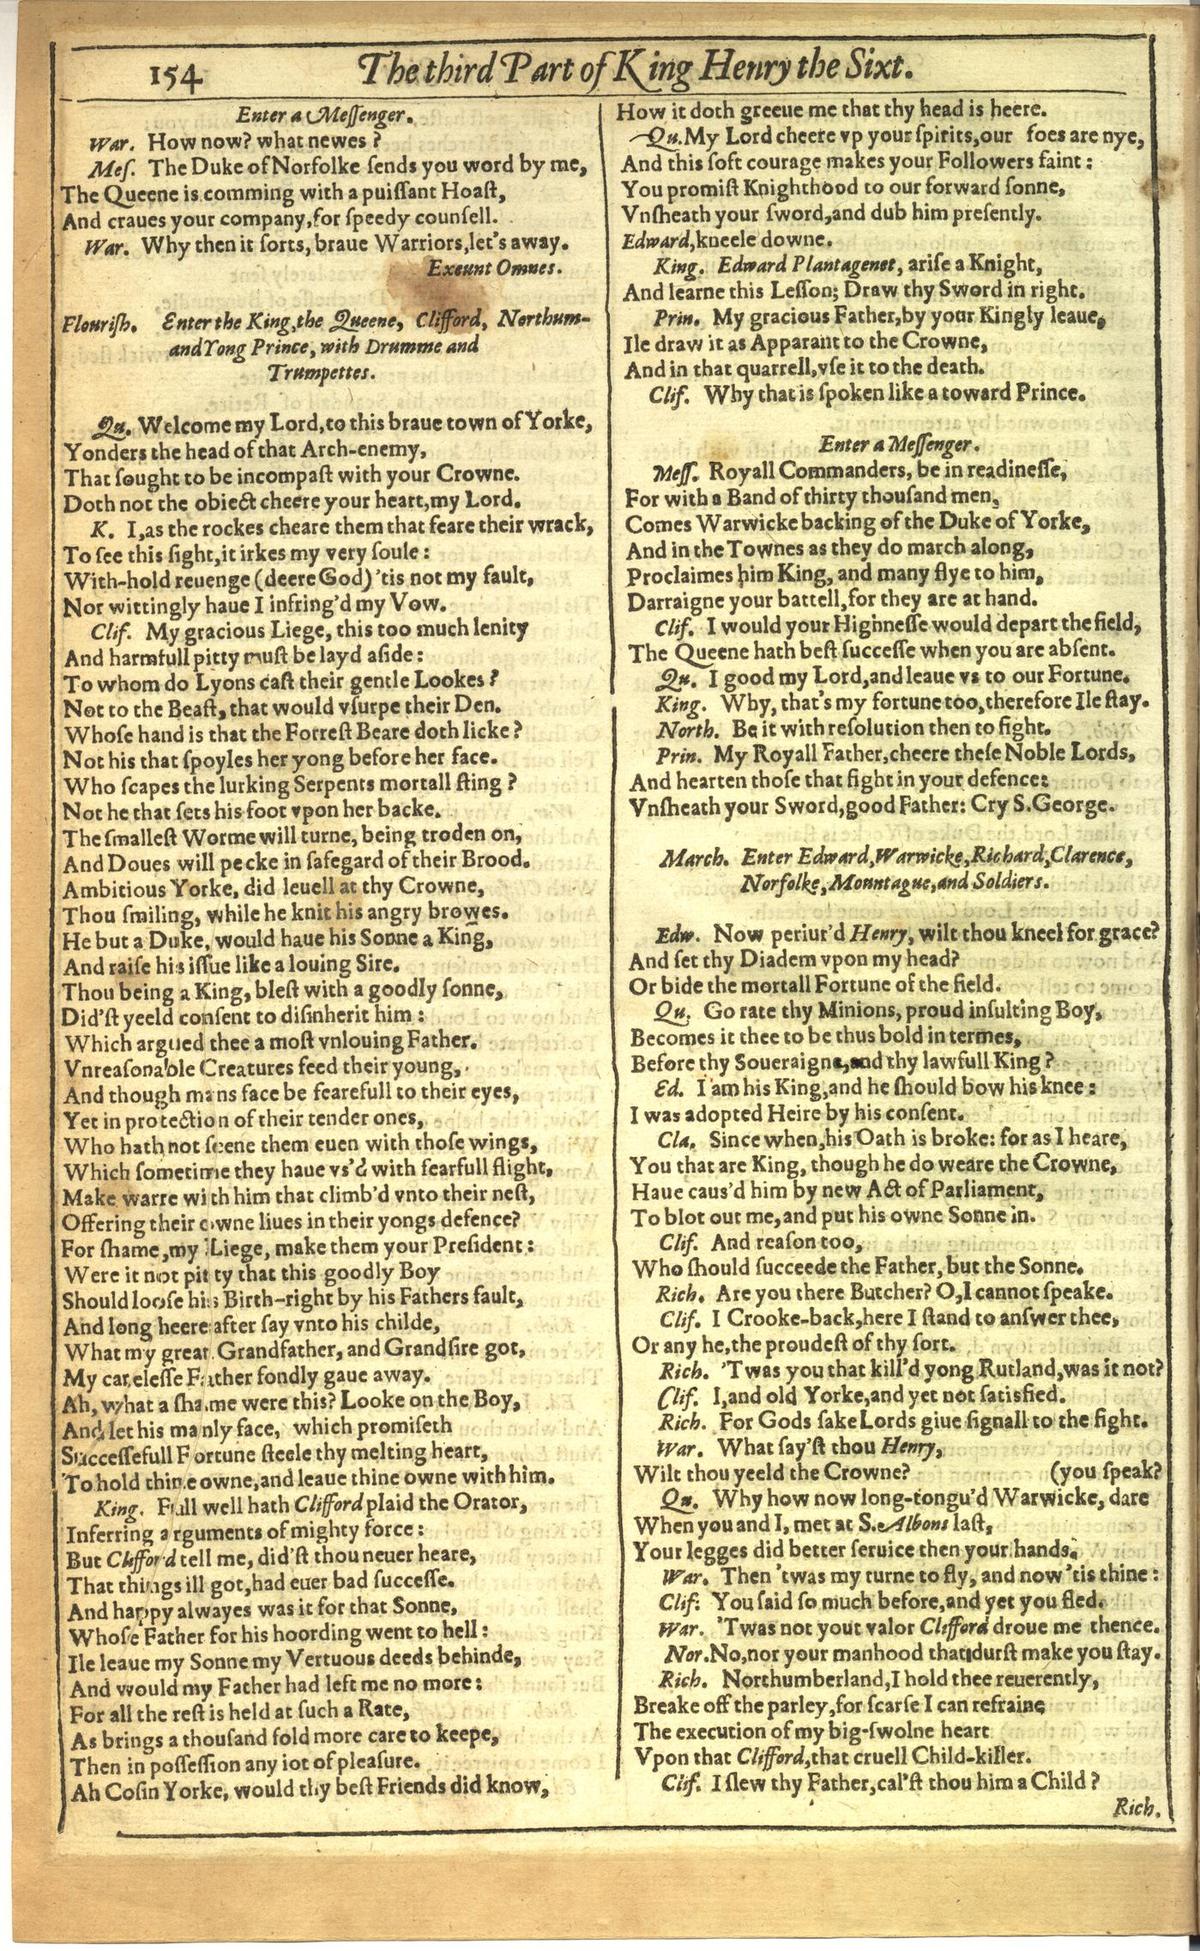 154
The third Part of King Henry the Sixt.
Enter a Meſſenger.
War. How now? what newes?
Meſ. The Duke of Norfolke ſends you word by me,
The Queene is comming with a puiſſant Hoaſt,
And craues your company, for ſpeedy counſell.
War. Why then it ſorts, braue Warriors, let's away.
Exeunt Omnes.
Flouriſh. Enter the King, the Queene, Clifford, Northum-
and Yong Prince, with Drumme and
Trumpettes.
Qu. Welcome my Lord, to this braue town of Yorke,
Yonders the head of that Arch-enemy,
That ſought to be incompaſt with your Crowne.
Doth not the obiect cheere your heart, my Lord.
K. I, as the rockes cheare them that feare their wrack,
To ſee this ſight, it irkes my very ſoule:
With-hold reuenge (deere God) 'tis not my fault,
Nor wittingly haue I infring'd my Vow.
Clif. My gracious Liege, this too much lenity
And harmfull pitty muſt be layd aſide:
To whom do Lyons caſt their gentle Lookes?
Not to the Beaſt, that would vſurpe their Den.
Whoſe hand is that the Forreſt Beare doth licke?
Not his that ſpoyles her yong before her face.
Who ſcapes the lurking Serpents mortall ſting?
Not he that ſets his foot vpon her backe.
The ſmalleſt Worme will turne, being troden on,
And Doues will pecke in ſafegard of their Brood.
Ambitious Yorke, did leuell at thy Crowne,
Thou ſmiling, while he knit his angry browes.
He but a Duke, would haue his Sonne a King,
And raiſe his iſſue like a louing Sire.
Thou being a King, bleſt with a goodly ſonne,
Did'ſt yeeld conſent to diſinherit him:
Which argued thee a moſt vnlouing Father.
Vnreaſonable Creatures feed their young,
And though mans face be fearefull to their eyes,
Yet in protection of their tender ones,
Who hath not ſeene them euen with thoſe wings,
Which ſometime they haue vs'd with fearfull flight,
Make warre with him that climb'd vnto their neſt,
Offering their owne liues in their yongs defence?
For ſhame, my Liege, make them your Preſident:
Were it not pitty that this goodly Boy
Should looſe his Birth-right by his Fathers fault,
And long heere after ſay vnto his childe,
What my great Grandfather, and Grandſire got,
My careleſſe Father fondly gaue away.
Ah, what a ſhame were this? Looke on the Boy,
And let his manly face, which promiſeth
Succeſſefull Fortune ſteele thy melting heart,
To hold thine owne, and leaue thine owne with him.
King. Full well hath Clifford plaid the Orator,
Inferring arguments of mighty force:
But Clifford tell me, did'ſt thou neuer heare,
That things ill got, had euer bad ſucceſſe.
And happy alwayes was it for that Sonne,
Whoſe Father for his hoording went to hell:
Ile leaue my Sonne my Vertuous deeds behinde,
And would my Father had left me no more:
For all the reſt is held at ſuch a Rate,
As brings a thouſand fold more care to keepe,
Then in poſſeſſion any iot of pleaſure.
Ah Coſin Yorke, would thy beſt Friends did know,
How it doth greeue me that thy head is heere.
Qu. My Lord cheere vp your ſpirits, our foes are nye,
And this ſoft courage makes your Followers faint:
You promiſt Knighthood to our forward ſonne,
Vnſheath your ſword, and dub him preſently.
Edward, kneele downe.
King. Edward Plantagenet, ariſe a Knight,
And learne this Leſſon; Draw thy Sword in right.
Prin. My gracious Father, by your Kingly leaue,
Ile draw it as Apparant to the Crowne,
And in that quarrell, vſe it to the death.
Clif. Why that is ſpoken like a toward Prince.
Enter a Meſſenger.
Meſſ. Royall Commanders, be in readineſſe,
For with a Band of thirty thouſand men,
Comes Warwicke backing of the Duke of Yorke,
And in the Townes as they do march along,
Proclaimes him King, and many flye to him,
Darraigne your battell, for they are at hand.
Clif. I would your Highneſſe would depart the field,
The Queene hath beſt ſucceſſe when you are abſent.
Qu. I good my Lord, and leaue vs to our Fortune.
King. Why, that's my fortune too, therefore Ile ſtay.
North. Be it with reſolution then to fight.
Prin. My Royall Father, cheere theſe Noble Lords,
And hearten thoſe that fight in your defence:
Vnſheath your Sword, good Father: Cry S. George.
March. Enter Edward, Warwicke, Richard, Clarence,
Norfolke, Mountague, and Soldiers.
Edw. Now periur'd Henry, wilt thou kneel for grace?
And ſet thy Diadem vpon my head?
Or bide the mortall Fortune of the field.
Qu. Go rate thy Minions, proud inſulting Boy,
Becomes it thee to be thus bold in termes,
Before thy Soueraigne, and thy lawfull King?
Ed. I am his King, and he ſhould bow his knee:
I was adopted Heire by his conſent.
Cla. Since when, his Oath is broke: for as I heare,
You that are King, though he do weare the Crowne,
Haue caus'd him by new Act of Parliament,
To blot out me, and put his owne Sonne in.
Clif. And reaſon too,
Who ſhould ſucceede the Father, but the Sonne.
Rich. Are you there Butcher? O, I cannot ſpeake.
Clif. I Crooke-back, here I ſtand to anſwer thee,
Or any he, the proudeſt of thy ſort.
Rich. 'Twas you that kill'd yong Rutland, was it not?
Clif. I, and old Yorke, and yet not ſatisfied.
Rich. For Gods ſake Lords giue ſignall to the fight.
War. What ſay'ſt thou Henry,
Wilt thou yeeld the Crowne? (you ſpeak?
Qu. Why how now long-tongu'd Warwicke, dare
When you and I, met at S. Albons laſt,
Your legges did better ſeruice then your hands.
War. Then 'twas my turne to fly, and now 'tis thine:
Clif: You ſaid ſo much before, and yet you fled.
War. 'Twas not yout valor Clifford droue me thence.
Nor. No, nor your manhood that durſt make you ſtay.
Rich. Northumberland, I hold thee reuerently,
Breake off the parley, for ſcarſe I can refraine
The execution of my big-ſwolne heart
Vpon that Clifford, that cruell Child-killer.
Clif. I ſlew thy Father, cal'ſt thou him a Child?
Rich.